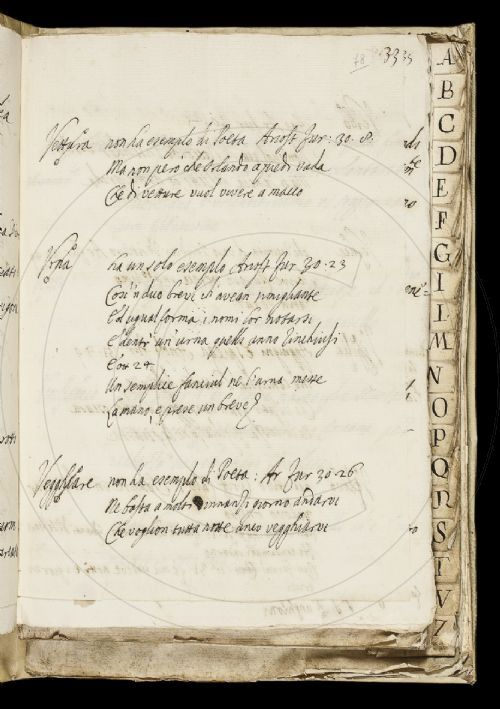 78 3335
Vettura non ha esempio di Poeta Ariost Fur: 30. 8.
Ma non però che Orlando a piedi vada
Che di vetture vuol vivere a macco
Vrna ha un solo esempio Ariost Fur 30. 23
Così 'n duo brevi ch'avean simigliante
Ed ugual forma i nomi lor notarsi
E dentr' un' urna quelli anno
E ott 24
Un semplice fanciul ne l'urna messe
La mano, e prese un breve
Vegghiare non ha esempio di Poeta: Ar Fur 30. 26
Ne basta a molti innanzi giorno andarvi
Che voglion tutta notte anco vegghiarvi
A
B
C
D
E
F
G
I
L
M
N
O
P
Q
R
S
T
V
Z